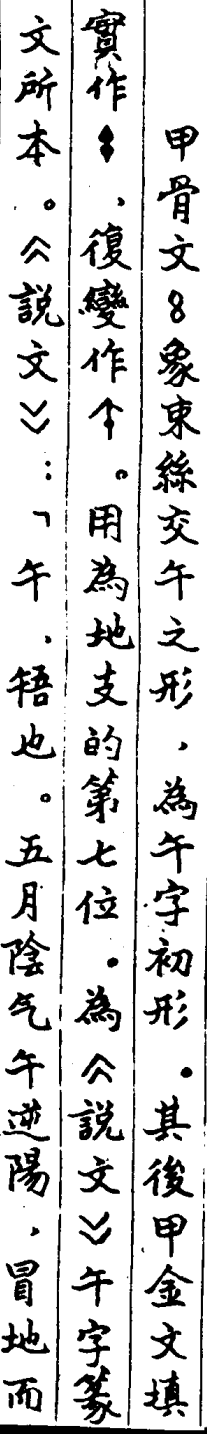 甲骨文8象束絲交午之形，為午字初形。其後甲金文填
實作，復變作。用為地支的第七位。為《說文》午字篆
文所本。《說文》：「午，啎也。五月陰气午逆陽，冒地而